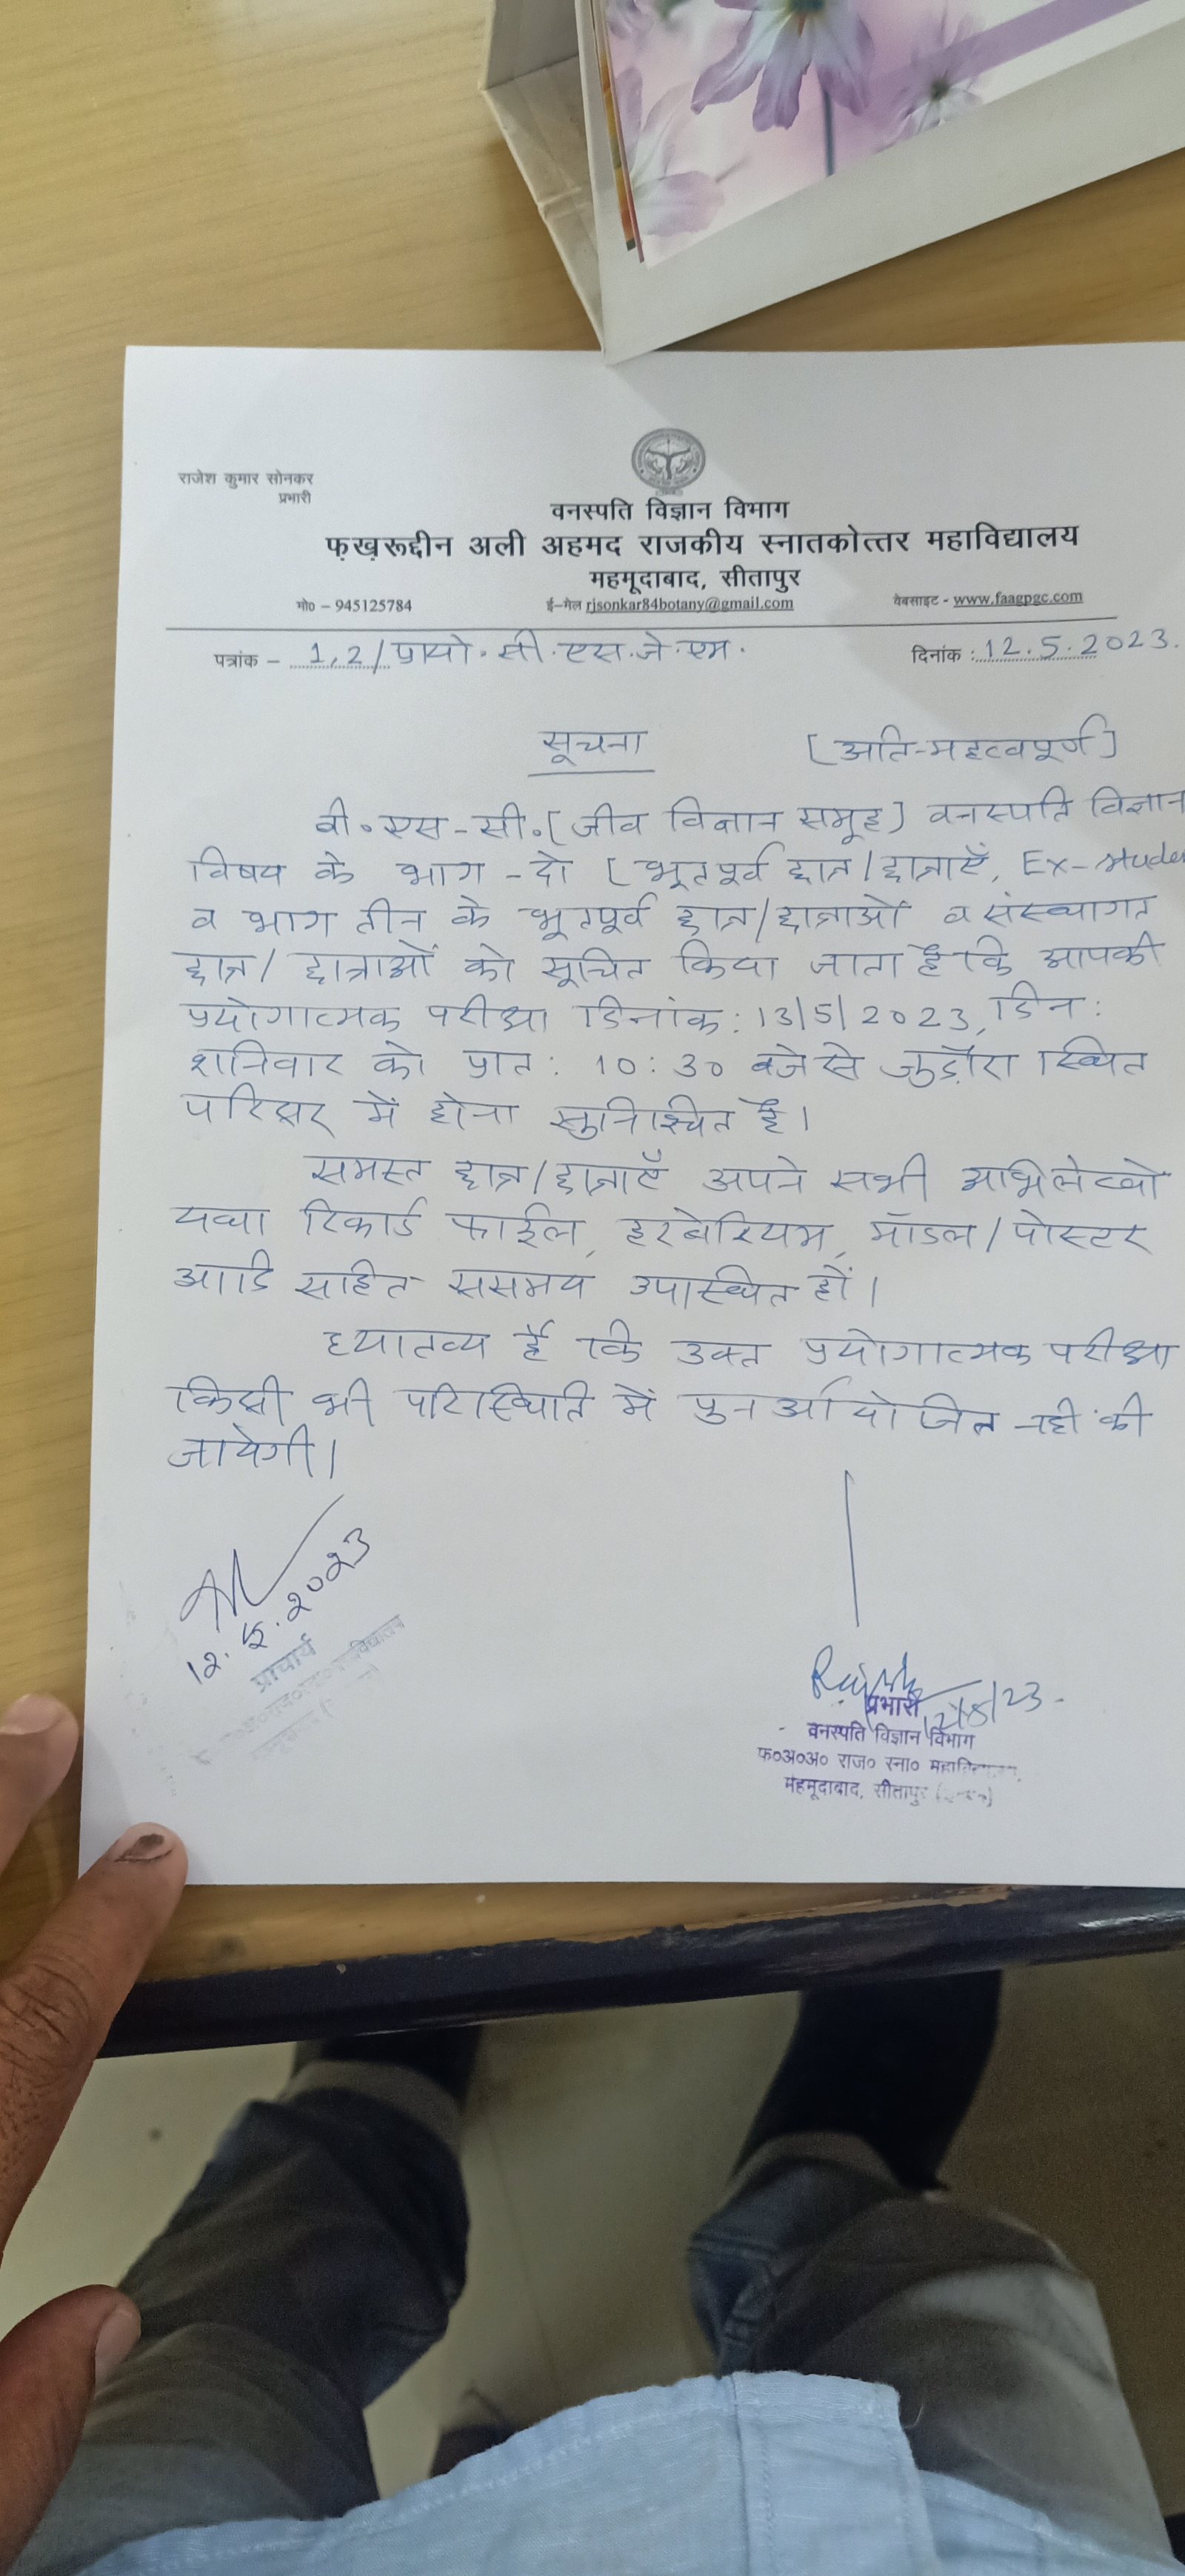 राजेश कुमार सोनकर
प्रभारी
वनस्पति विज्ञान विभाग
फ़ख़रूद्दीन अली अहमद राजकीय स्नातकोत्तर महाविद्यालय
महमूदाबाद, सीतापुर
मो० – 945125784
ई–मेल rjsonkar84botany@gmail.com
वेबसाइट - www.faagpgc.com
पत्रांक – 1,2/प्रायो.सी.एस.जे.एम.
दिनांक : 12.5.2023.
सूचना [अति-महत्वपूर्ण]
बी०एस-सी०[जीव विज्ञान समूह] वनस्पति विज्ञान
विषय के भाग-दो [भूतपूर्व छात्र/छात्राएँ, Ex-stude
व भाग तीन के भूतपूर्व छात्र/छात्राओं व संस्थागत
छात्र/छात्राओं को सूचित किया जाता है कि आपकी
प्रयोगात्मक परीक्षा दिनांक: 13/5/2023, दिन:
शनिवार को प्रात: 10:30 बजे से स्थित
परिसर में होना सुनिश्चित है।
समस्त छात्र/छात्राएँ अपने सभी अभिलेखो
यथा रिकार्ड फाईल, हरबेरियम, मॉडल/पोस्टर
आदि सहित ससमय उपस्थित हों।
ध्यातव्य है कि उक्त प्रयोगात्मक परीक्षा
किसी भी परिस्थिति में पुनर्आयोजित नही की
जायेगी।
12.5.2023
प्राचार्य
12/5/23
प्रभारी
वनस्पति विज्ञान विभाग
फ०अ०अ० राज० स्ना०
महमूदाबाद, सीतापुर